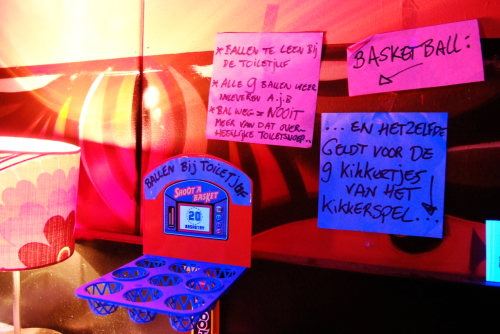 * BALLEN TE LEEN BIJ
DE TOILETJUF
* ALLE 9 BALLEN WEER
INLEVEREN A.J.B
* BAL WEG = NOOIT
MEER VAN DAT OVER-
HEERLIJKE TOILETSNOEP...
BASKETBALL:
... EN HETZELFDE
GELDT VOOR DE
9 KIKKERTJES
VAN HET
KIKKERSPEL...!
BALLEN BIJ TOILETJUF
SHOOT A
BASKET
20